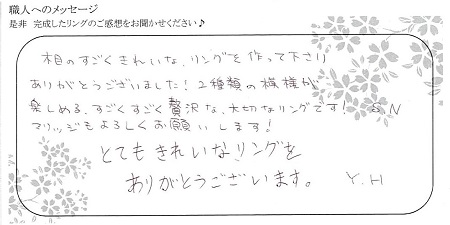 職人へのメッセージ
是非 完成したリングのご感想をお聞かせください♪
木目のすごくきれいな、リングを作って下さり
ありがとうございました!2種類の模様が
楽しめる、すごくすごく贅沢な、大切なリングです! S N
マリッジもよろしくお願いします!
とてもきれいなリングを
ありがとうございます。 Y.H